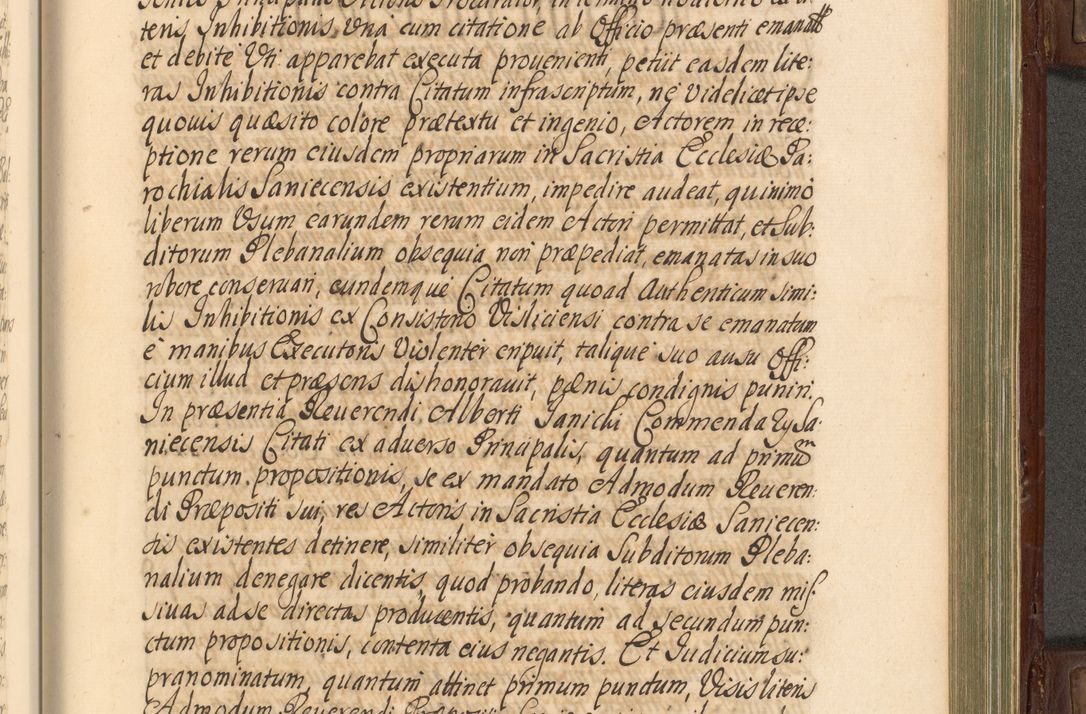 teris Inhibitionis Una cum citatione ab Officio præsenti emanatis
et debite Uti apparebat executa prouenienti, petiit easdem lite:
ras Inhibitionis contra Citatum infrascriptum, ne Videlicet ipse
quouis quæsito colore prætextu et ingenio, Actorem in rece:
ptione rerum eiusdem propriarum in Sacristia Ecclesiæ Pa:
rochialis Saniecensis existentium, impedire audeat, quinimo
liberum Usum earundem rerum eidem Actori permittat, et Sub:
ditorum Plebanalium obsequia non præpediat, emanatas in suo
robore conseruari, eundemque Citatum quoad Authenticum simi:
lis Inhibitionis ex Consistorio Visliciensi contra se emanatam
e manibus Executoris Violenter eripuit, talique suo ausu Offi:
cium illud et præsens dishonorauit, pænis condignis puniri.
In præsentia Reuerendi Alberti Janichi Commendarÿ Sa:
niecensis Citati ex aduerso Principalis, quantum ad primum
punctum propositionis, se ex mandato Admodum Reueren:
di Præpositi sui, res Actoris in Sacristia Ecclesiæ Saniecen:
sis existentes detinere, similiter obsequia Subditorum Pleba:
nalium denegare dicentis, quod probando, literas eiusdem mis
siuas ad se directas producentis, quantum ad secundum pun:
ctum propositionis, contenta eius negantis. Et Judicium su:
pranominatum, quantum attinet primum punctum, Visis literis
Admodum Reuerendi Præpositi